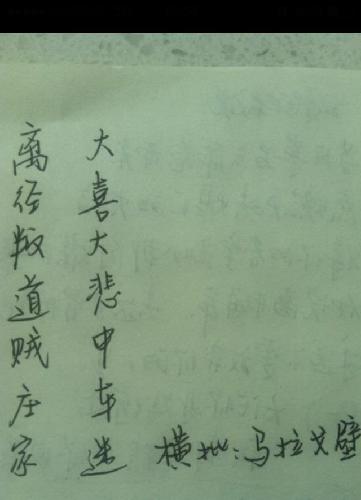 大喜大悲中车迷
离经叛道贼庄家
横批:马拉戈壁